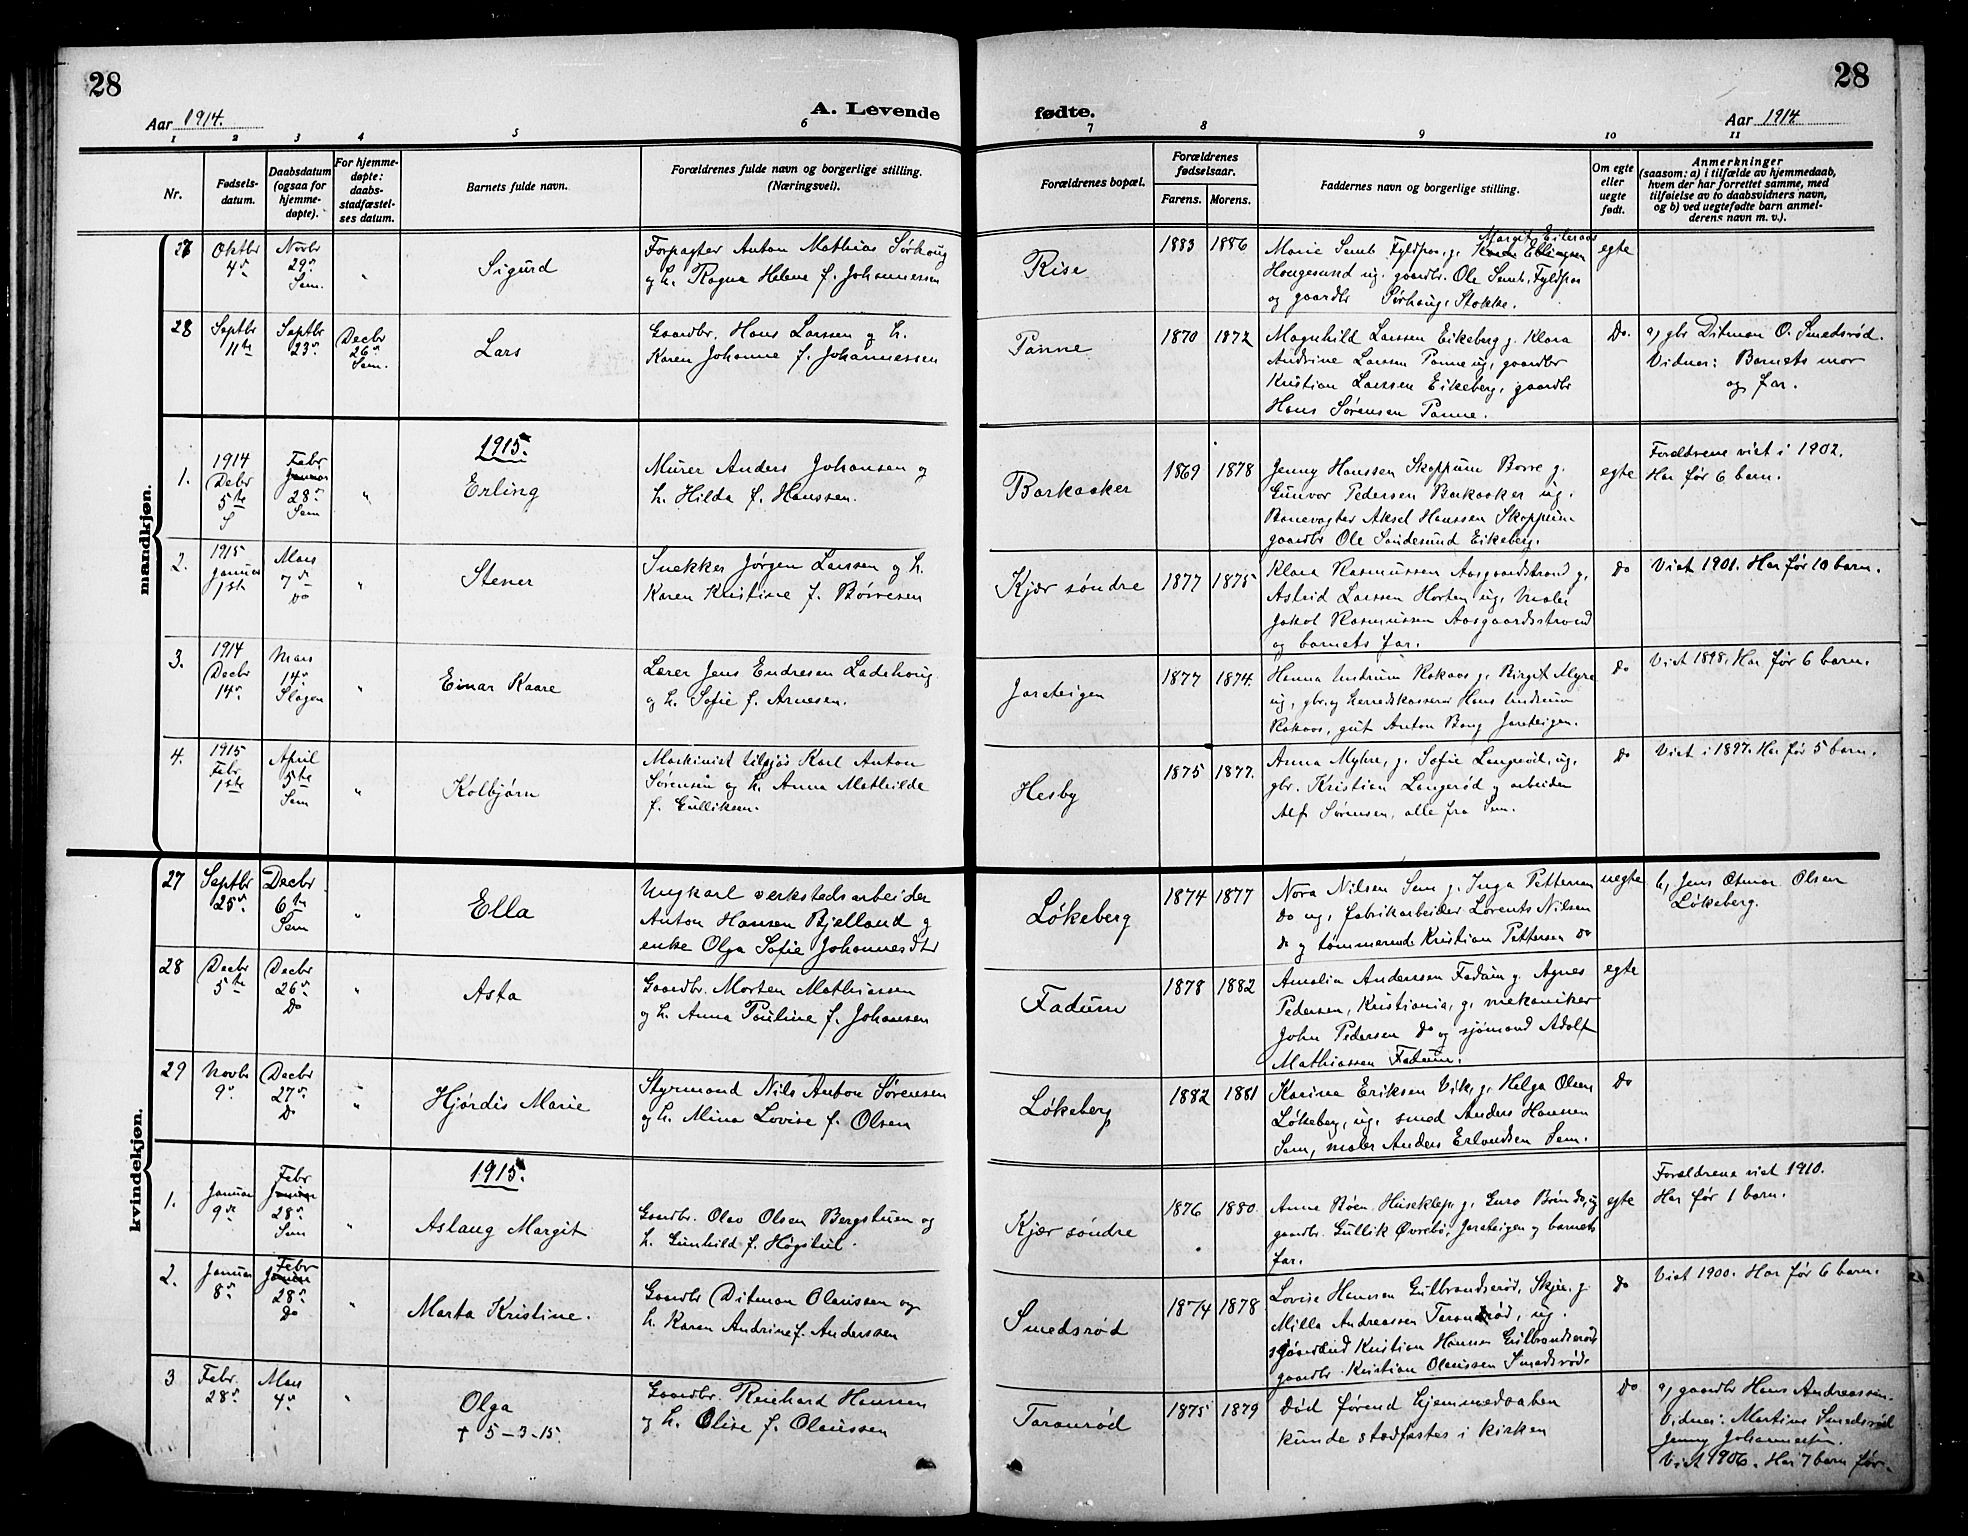 28
28
Aar 1914.
A. Levende
fødte.
Aar 1914
1 2 3 4 5 6 7 8 9 10 11
Nr.
Fødsels-
datum.
Daabsdatum
(ogsaa for
hjemme-
døpte).
For hjemme-
døpte:
daabs-
stadfæstel-
ses datum.
Barnets fulde navn.
Forældrenes fulde navn og borgerlige stilling.
(Næringsvei).
Forældrenes bopæl.
Forældrenes
fødselsaar.
Farens. Morens.
Faddernes navn og borgerlige stilling.
Om egte
eller
uegte
født.
Anmerkninger
(saasom: a) i tilfælde av hjemmedaab,
hvem der har forrettet samme, med
tilføielse av to daabsvidners navn,
og b) ved uegtefødte barn anmel-
derens navn m. v.).
mandkjøn.
27
Oktbr
4de
Novbr
29de
Sem.
"
Sigurd
Forpagter Anton Mathias Sørhaug
og h. Ragna Helene f. Johannessen
Rise
1883 1886
Margit
Marie Semb Fyldpaa, g. Karen Ellingsen
Haugesund ug. gaardbr. Ole Semb, Fyldpaa
og gaardbr Sørhaug, Stokke.
egte
28
Septbr
11te
Septbr
23de
Decbr
26de
Sem.
Lars
Gaardbr. Hans Larsen og h.
Karen Johanne f. Johannessen
Panne
1870 1872
Magnhild Larsen Eikeberg g. Klara
Andrine Larsen Panne ug, gaardbr
Kristian Larssen Eikeberg, gaardbr
Hans Sørensen Panne.
Do.
a) gbr Ditman O. Smedsrød.
Vidner: Barnets mor
og far.
1915.
1.
1914
Debr
5te
S
Febr
Januar
28de
Sem
"
Erling
Murer Anders Johansen og
h. Hilda f. Hanssen.
Barkaaker
1869 1878
Jenny Hanssen Skoppum Borre g.
Gunvor Pedersen Barkaaker ug.
Banevogter Aksel Hanssen Skoppum
gaardbr Ole Sandesund Eikeberg.
egte
Forældrene viet i 1902.
Har før 6 barn.
2.
1915
Januar
1ste
Mars
7de
Do
"
Stener
Snekker Jørgen Larsen og h.
Karen Kristine f. Børresen
Kjær søndre
1877 1875
Klara Rasmussen Aasgaardstrand g.
Astrid Larssen Horten ug, Maler
Jakob Rasmussen Aasgaardsstrand
og barnets far.
do
Viet 1901. Har før 10 barn.
3.
1914
Decbr
14de
Mars
14de
Slagen
"
Einar Kaare
Lærer Jens Endresen Ladehaug
og h. Sofie f. Arnesen.
Jareteigen
1877 1874.
Hanna Undrum Rakaas g. Birgit Myre
ug, gbr. og herredskasserer Hans Undrum
Rakaas, gut Anton Bang Jareteigen.
do
Viet 1898. Har før 6 barn.
4.
1915
Febr
1ste
April
5te
Sem
"
Kolbjørn
Maskinist tilsjøs Karl Anton
Sørensen og h. Anna Mathilde
f. Gulliksen.
Hesby
1875 1877.
Anna Myhre, g. Sofie Langerød, ug,
gbr. Kristian Langerød og arbeider
Alf Sørensen, alle fra Sem.
do
Viet i 1897. Har før 5 barn.
kvindekjøn.
27
Septbr
25de
Decbr
6te
Sem
"
Ella
Ungkarl verkstedsarbeider
Anton Hansen Bjelland og
enke Olga Sofie Johannesdtr
Løkeberg
1874 1877
Nora Nilsen Sem g. Inga Pettersen
do ug, fabrikarbeider Lorents Nilsen
do og tømmermd Kristian Pettersen do
uegte
b) Jens Otmar Olsen
Løkeberg.
28
Decbr
5te
Decbr
26de
Do
"
Asta
Gaardbr. Morten Mathiassen
og h. Anna Pauline f. Johansen
Fadum
1878 1882
Amalia Anderssen Fadum g. Agnes
Pedersen, Kristiania, g, mekaniker
John Pedersen do og sjømand Adolf
Mathiassen Fadum.
egte
29
Novbr
9de
Decbr
27de
Do
"
Hjørdis Marie
Styrmand Nils Anton Sørensen
og h. Mina Lovise f. Olsen
Løkeberg
1882 1881
Karina Eriksen Vik, g. Helga Olsen
Løkeberg, ug, smed Anders Hansen
Sem, maler Anders Erlandsen Sem.
do
1915.
1.
Januar
9de
Febr
Januar
28de
Sem
"
Aslaug Margit
Gaardbr. Olav Olsen Bergstuen og
h. Gunhild f. Høgstul.
Kjær søndre
1876 1880
Anne Røen Huseklep, g, Guro Brendo, ug
gaardbr. Gullik Øvrebø, Jareteigen og barnets
far.
egte
Forældrene viet 1910.
Har før 1 barn.
2.
Januar
8de
Febr
Januar
28de
do
"
Marta Kristine.
Gaardbr Ditman Olaussen og
h. Karen Andrine f. Anderssen
Smedsrød
1874 1878
Lovise Hanssen Gulbrandserød, Skjee g.
Milla Andreassen Taranrød, ug.
sjømand Kristian Hansen Gulbrandserød
gaardbr. Kristian Olaussen Smedsrød.
do
Viet 1900. Har før 6 barn.
3
Febr.
28de
Mars
4de
"
Olga
+ 5-3-15.
Gaardbr. Reinhard Hanssen
og h. Olise f. Olaussen
Taranrød
1875 1879
Død førend hjemmedaaben
kunde stadfæstes i kirken
do
a) gaardbr Hans Andreassen.
Vidner: Martine Smedsrød
Jenny Johannessen.
Viet 1906. Har 7 barn før.